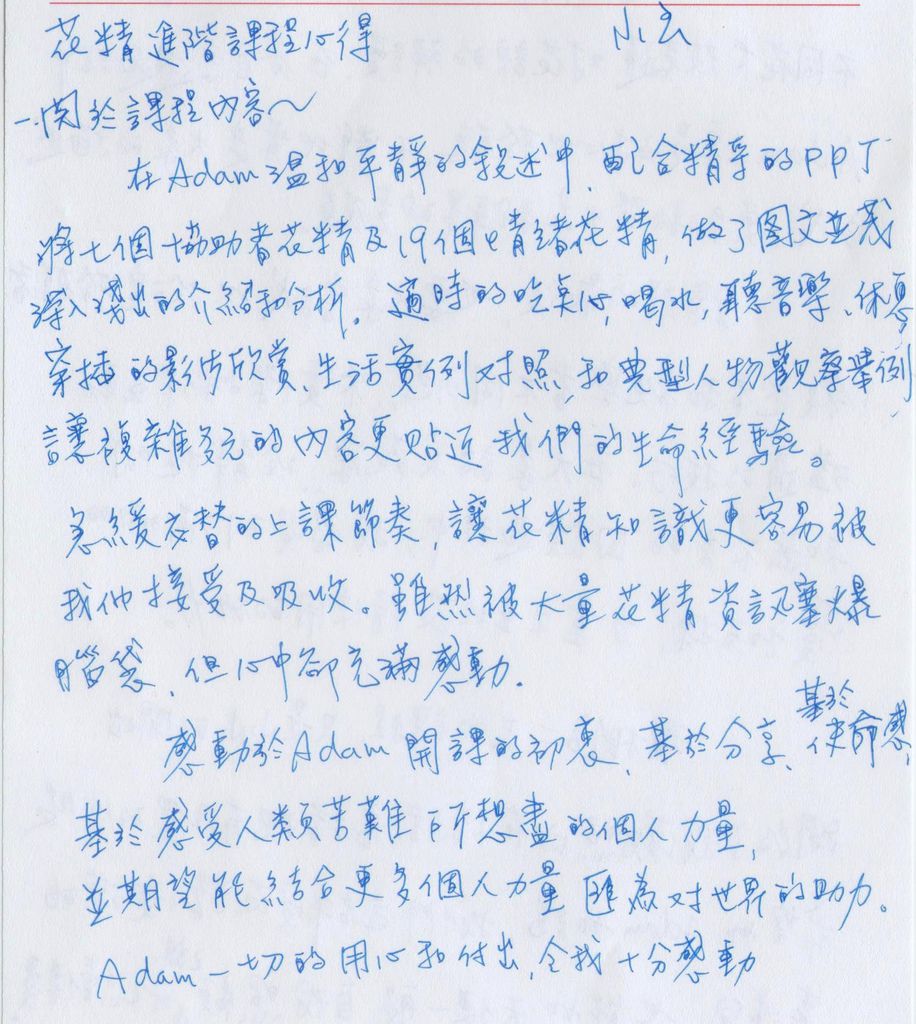 花精進階課程心得
一.関於課程內容～
在Adam溫和平靜的敘述中,配合精宰的PPT
將七個協助者花精及19個情緒花精,做了图文並茂
深入淺出的介紹和分析。適時的吃桌心,喝水,聽音樂、休息,
穿插的影片欣賞、生活實例对照,和典型人物觀察舉例,
讓複雜多元的內容更贴近我們的生命經驗。
急緩交替的上課節奏,讓花精知識更容易被
我们接受及吸收。雖然被大量花精資訊塞爆
腦袋,但心中卻充滿感動.
感動於Adam開課的初衷,基於分享、基於使命感,
基於感受人類苦難所想盡的個人力量,
並期望能結合更多個人力量匯為对世界的助力。
Adam一切的用心和付出,令我十分感動